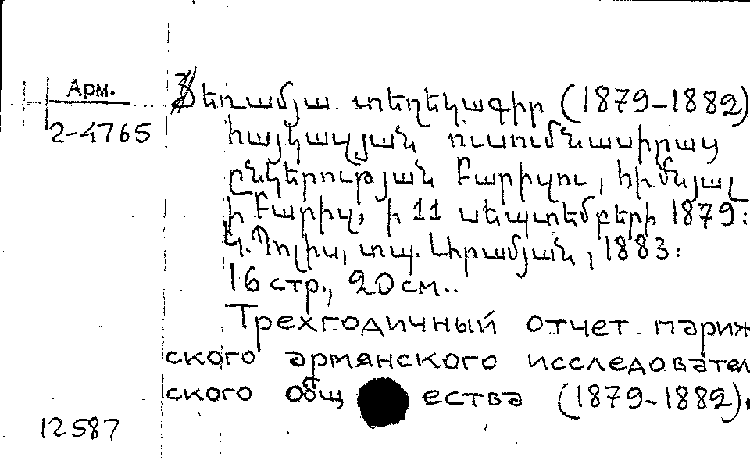 Арм.
2-4765
Յեռամյա տեղեկագիր (1879-1882)
հայկական ուսումնասիրաց
ընկերության Բարիզու, հիմնյալ
ի Բարիզ, ի 11 սեպտեմբերի 1879։
Կ.Պոլիս, տպ. Նիրամյան, 1883։
16 стр., 20 см..
Трехгодичный отчет париж
ского армянского исследовател
ского общ ества (1879-1882).
12587